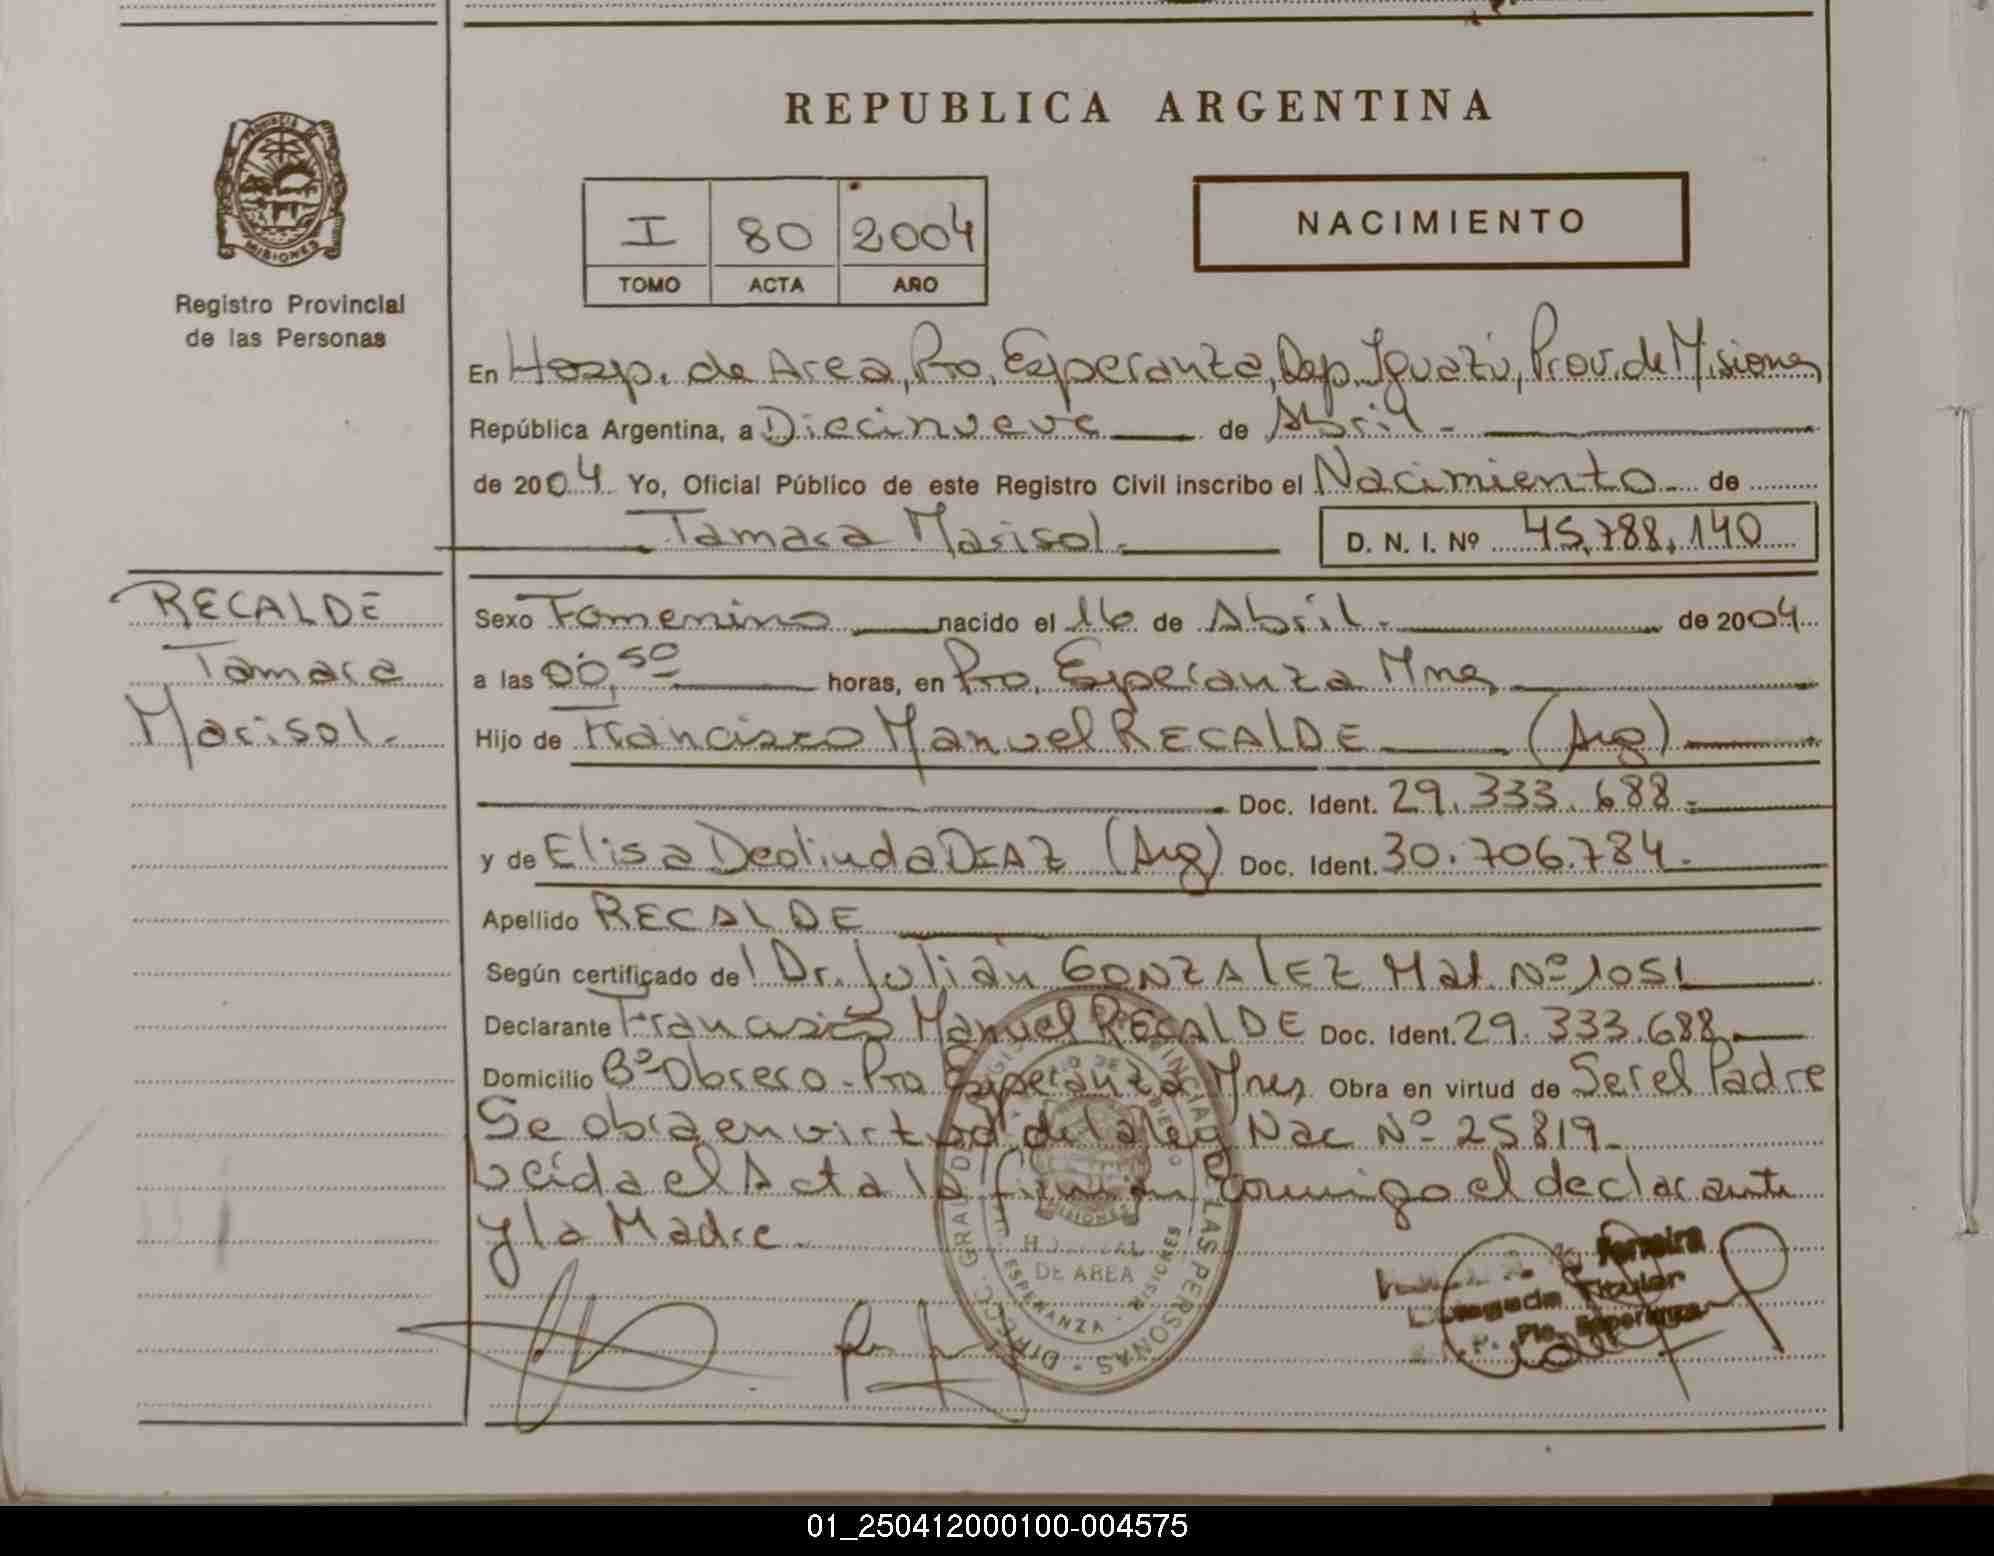 REPUBLICA ARGENTINA
PROVINCIA DE
MISIONES
Registro Provincial
de las Personas
I 80 2004
TOMO ACTA AÑO
NACIMIENTO
En Hosp. de Area, Pto. Esperanza, Dep. Iguazú, Prov. de Misiones
República Argentina, a Diecinueve de Abril.
de 2004 Yo, Oficial Público de este Registro Civil inscribo el Nacimiento de
Tamara Marisol. D. N. I. Nº 45,788,140
RECALDE
Tamara
Marisol.
Sexo Femenino nacido el 16 de Abril. de 2004
a las 00,50 horas, en Pto. Esperanza Mnes
Hijo de Francisco Manuel RECALDE (Arg)
Doc. Ident. 29.333.688.
y de Elisa Deolinda DIAZ (Arg) Doc. Ident. 30.706.784.
Apellido RECALDE
Según certificado del Dr. Julián GONZALEZ Mat. Nº 1051
Declarante Francisco Manuel RECALDE Doc. Ident. 29.333.688
Domicilio Bº Obrero - Pto Esperanza Mnes Obra en virtud de Ser el Padre
Se obra en virtud de la ley Nac Nº 25819
Leída el Acta la firman conmigo el declarante
y la Madre.
DIRECC. GRAL DE LAS PERSONAS
MISIONES
DE AREA
ESPERANZA - MISIONES
Ferreira
Titular
Pto. Esperanza
01_250412000100-004575